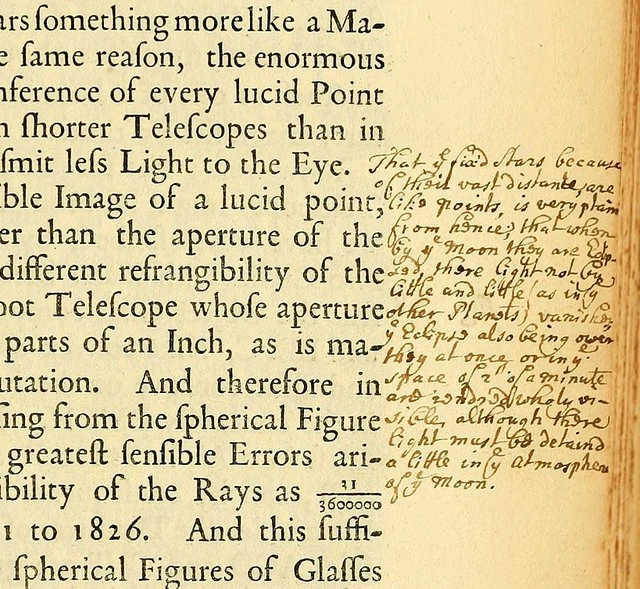 ars ſomething more like a Ma-
e ſame reaſon, the enormous
nference of every lucid Point
n ſhorter Teleſcopes than in
ſmit leſs Light to the Eye.
ible Image of a lucid point,
er than the aperture of the
different refrangibility of the
oot Teleſcope whoſe aperture
parts of an Inch, as is ma-
utation. And therefore in
ſing from the ſpherical Figure
greateſt ſenſible Errors ari-
ibility of the Rays as 31/3600000
1 to 1826. And this ſuffi-
ſpherical Figures of Glaſſes
That yͤ fixd Stars because
of their vast distance, are
like points, is very plain
from hence; that when
by yͤ Moon they are Eclip-
sed, there light not by
little and little (as in yͤ
other Planets) vanishes
yͤ Eclipse also being over
they at once or in yͤ
space of 2" of a minute
are rendred wholy vi-
sible, although there
light must be detaind
a little in yͤ Atmosphere
of yͤ Moon.